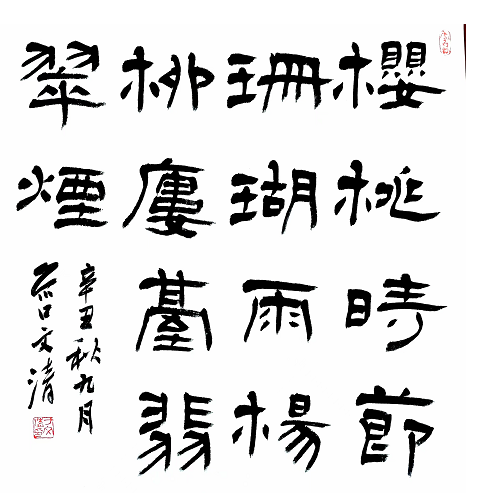 櫻桃時節
珊瑚雨楊
柳廔臺翡
翠煙
辛丑秋九月
文清